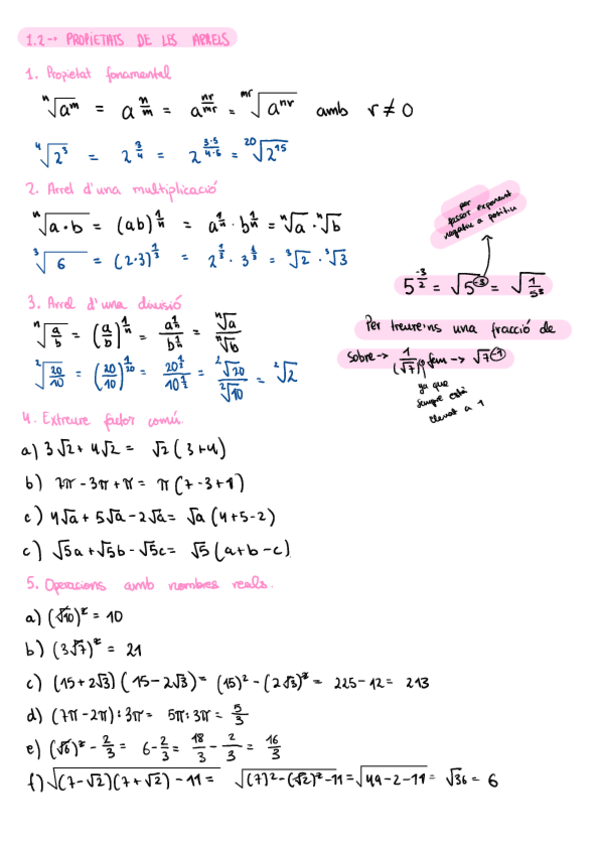 1.2-> PROPIETATS DE LES ARRELS
1. Propietat fonamental
ⁿ√aᵐ = a^(n/m) = a^(nr/mr) = ᵐʳ√aⁿʳ amb r ≠ 0
⁴√2³ = 2^(3/4) = 2^(3·5/4·5) = ²⁰√2¹⁵
2. Arrel d'una multiplicació
ⁿ√a·b = (ab)^(1/n) = a^(1/n) · b^(1/n) = ⁿ√a · ⁿ√b
³√6 = (2·3)^(1/3) = 2^(1/3) · 3^(1/3) = ³√2 · ³√3
3. Arrel d'una divisió
ⁿ√(a/b) = (a/b)^(1/n) = a^(1/n)/b^(1/n) = ⁿ√a/ⁿ√b
²√(20/10) = (20/10)^(1/20) = 20^(1/2)/10^(1/2) = ²√20/²√10 = ²√2
per
passar exponent
negatiu a positiu
5^(-3/2) = √5^(-3) = √(1/5³)
Per treure'ns una fracció de
sobre-> 1/(√7) fem -> √7^(-1)
ya que
sempre està
elevat a 1
4. Extreure factor comú.
a) 3√2 + 4√2 = √2 (3+4)
b) 7π - 3π + π = π (7-3+1)
c) 4√a + 5√a - 2√a = √a (4+5-2)
c) √5a + √5b - √5c = √5 (a+b-c)
5. Operacions amb nombres reals.
a) (√10)² = 10
b) (3√7)² = 21
c) (15+2√3)(15-2√3) = (15)² - (2√3)² = 225-12 = 213
d) (7π-2π):3π = 5π:3π = 5/3
e) (√6)² - 2/3 = 6 - 2/3 = 18/3 - 2/3 = 16/3
f) √(7-√2)(7+√2) - 11 = √(7)²-(√2)²-11 = √49-2-11 = √36 = 6